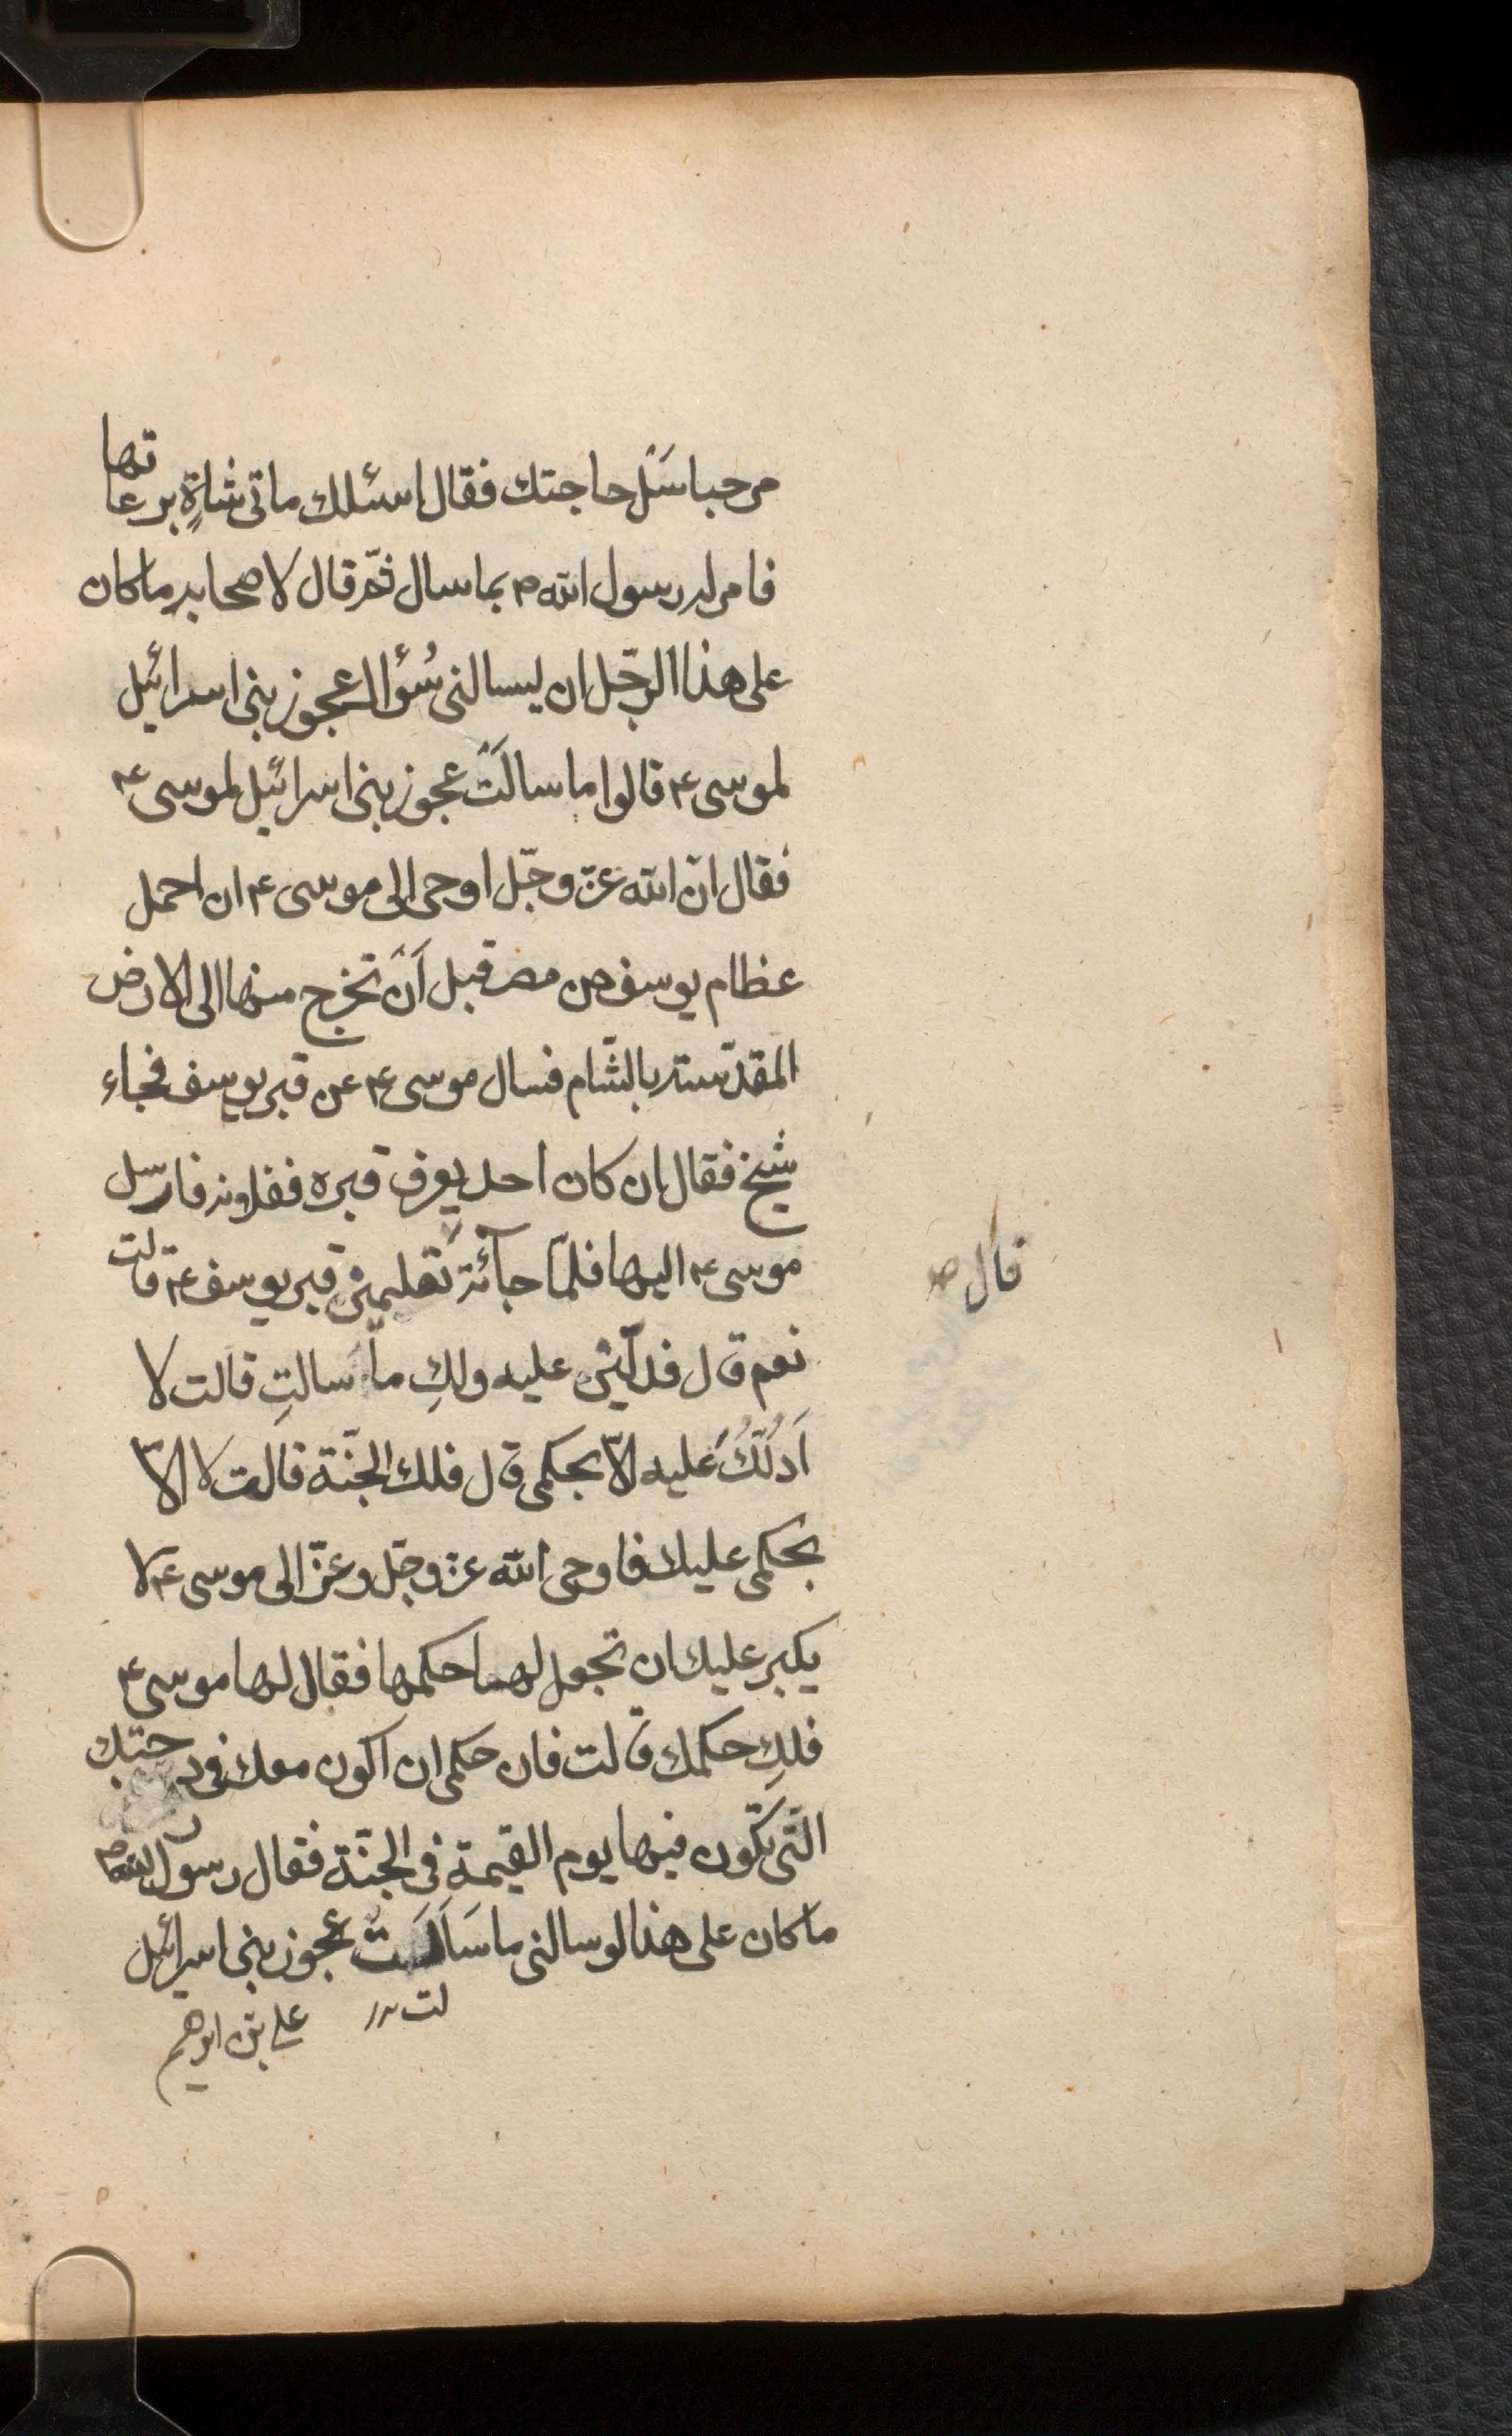 مرحبا سَل حاجتك فقال اسئلك مأتى شاةٍ برعاتها
فامر له رسول الله ص بما سال ثمّ قال لاصحابه ما كان
على هذا الرجّل ان يسالنى سُؤال عجوز بنى اسرائيل
لموسى ع قالوا ما سالَت عجوز بنى اسرائيل لموسى ع
فقال انّ الله عزّ وجّل اوحى الى موسى ع ان احمل
عظام يوسف من مصر قبل اَن تخرج منها الى الارض
المقدّسته بالشّام فسال موسى ع عن قبر يوسف فجاء
شيخ فقال ان كان احد يعرف قبره ففلانه فارسل
موسى ع اليها فلمّا جآئته تعلمين قبر يوسف ع قالت
قال صح
نعم قال فدلّينى عليه ولكِ ما سالتِ قالت لا
اَدُلّكُ عليه الاّ بحكمى قال فلك الجنّة قالت لا الاّ
بحكمى عليك فاوحى الله عز وجّل وعزّ الى موسى ع لا
يكبر عليك ان تجعل لها حكمها فقال لها موسى ع
فلكِ حكمك قالت فان حكمى ان اكون معك فى درجتك
التّى تكّون فيها يوم القيمة فى الجنّة فقال رسول الله ص
ما كان على هذا لو سالنى ما سَاَلَت عجوز بنى اسرائيل
لت
على بن ابرهيم